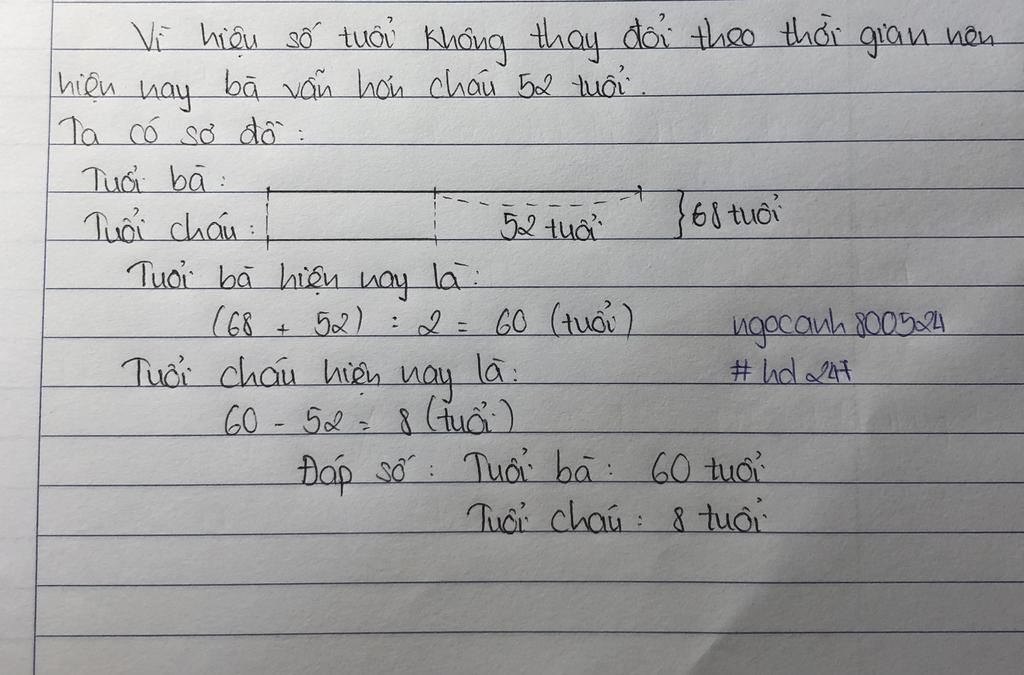 Vì hiệu số tuổi không thay đổi theo thời gian nên
hiện nay bà vẫn hơn cháu 52 tuổi.
Ta có sơ đồ :
Tuổi bà :
Tuổi cháu :
52 tuổi
}68 tuổi
Tuổi bà hiện nay là:
(68 + 52) : 2 = 60 (tuổi)
ngocanh800524
Tuổi cháu hiện nay là:
#hd247
60 - 52 = 8 (tuổi)
Đáp số : Tuổi bà : 60 tuổi
Tuổi cháu : 8 tuổi